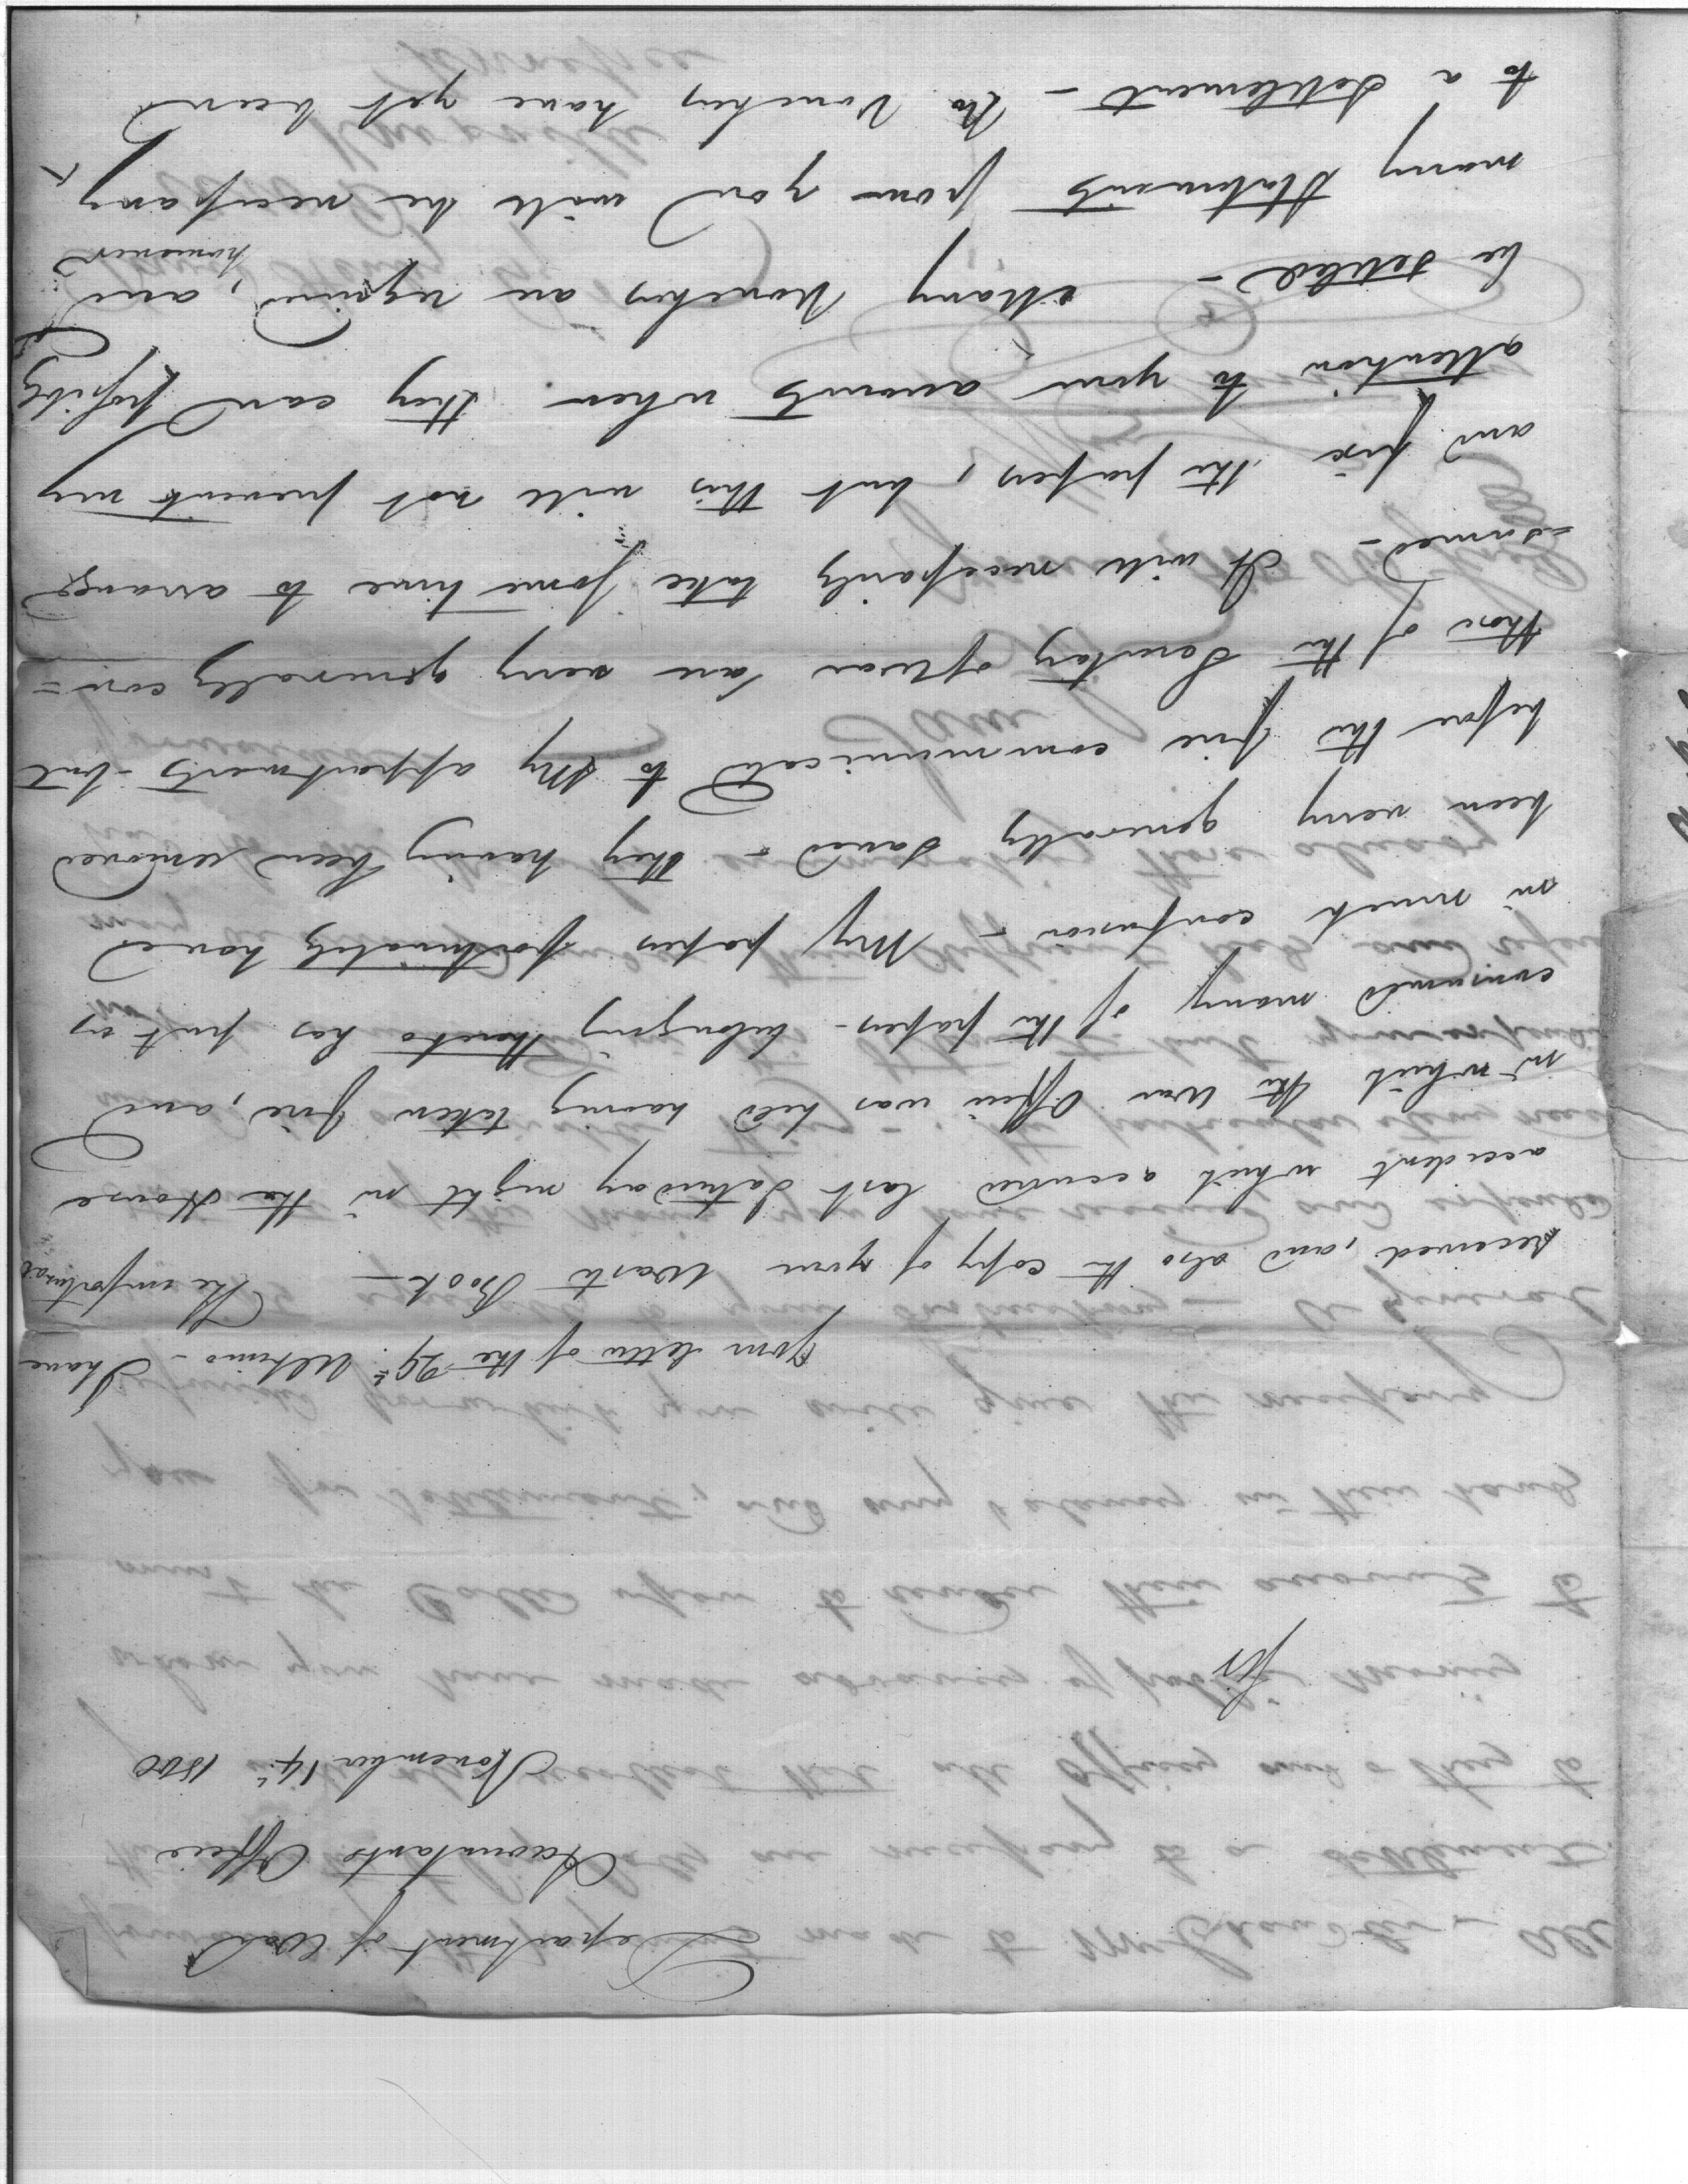 Department of War
Accountants Office
November 14th 1800
Sir
Your letter of the 29th Ultimo - I have
received, and also the copy of your Waste Book - The unfortunate
accident which occurred last Saturday night in the House
in which the War Office was held having taken fire, and
consumed many of the papers - belonging thereto has put us
in much confusion - My papers fortunately have
been very generally saved - They having been removed
before the fire communicated to My appartments - but
those of the Secretary of War are very generally con=
=sumed - It will necessarily take some time to arrange
and fix the papers, but this will not prevent my
attention to your accounts when they can possibly
be settled - Many Vouchers are required, and
however
many Statements from you will be necessary
to a Settlement - No Vouchers have yet been